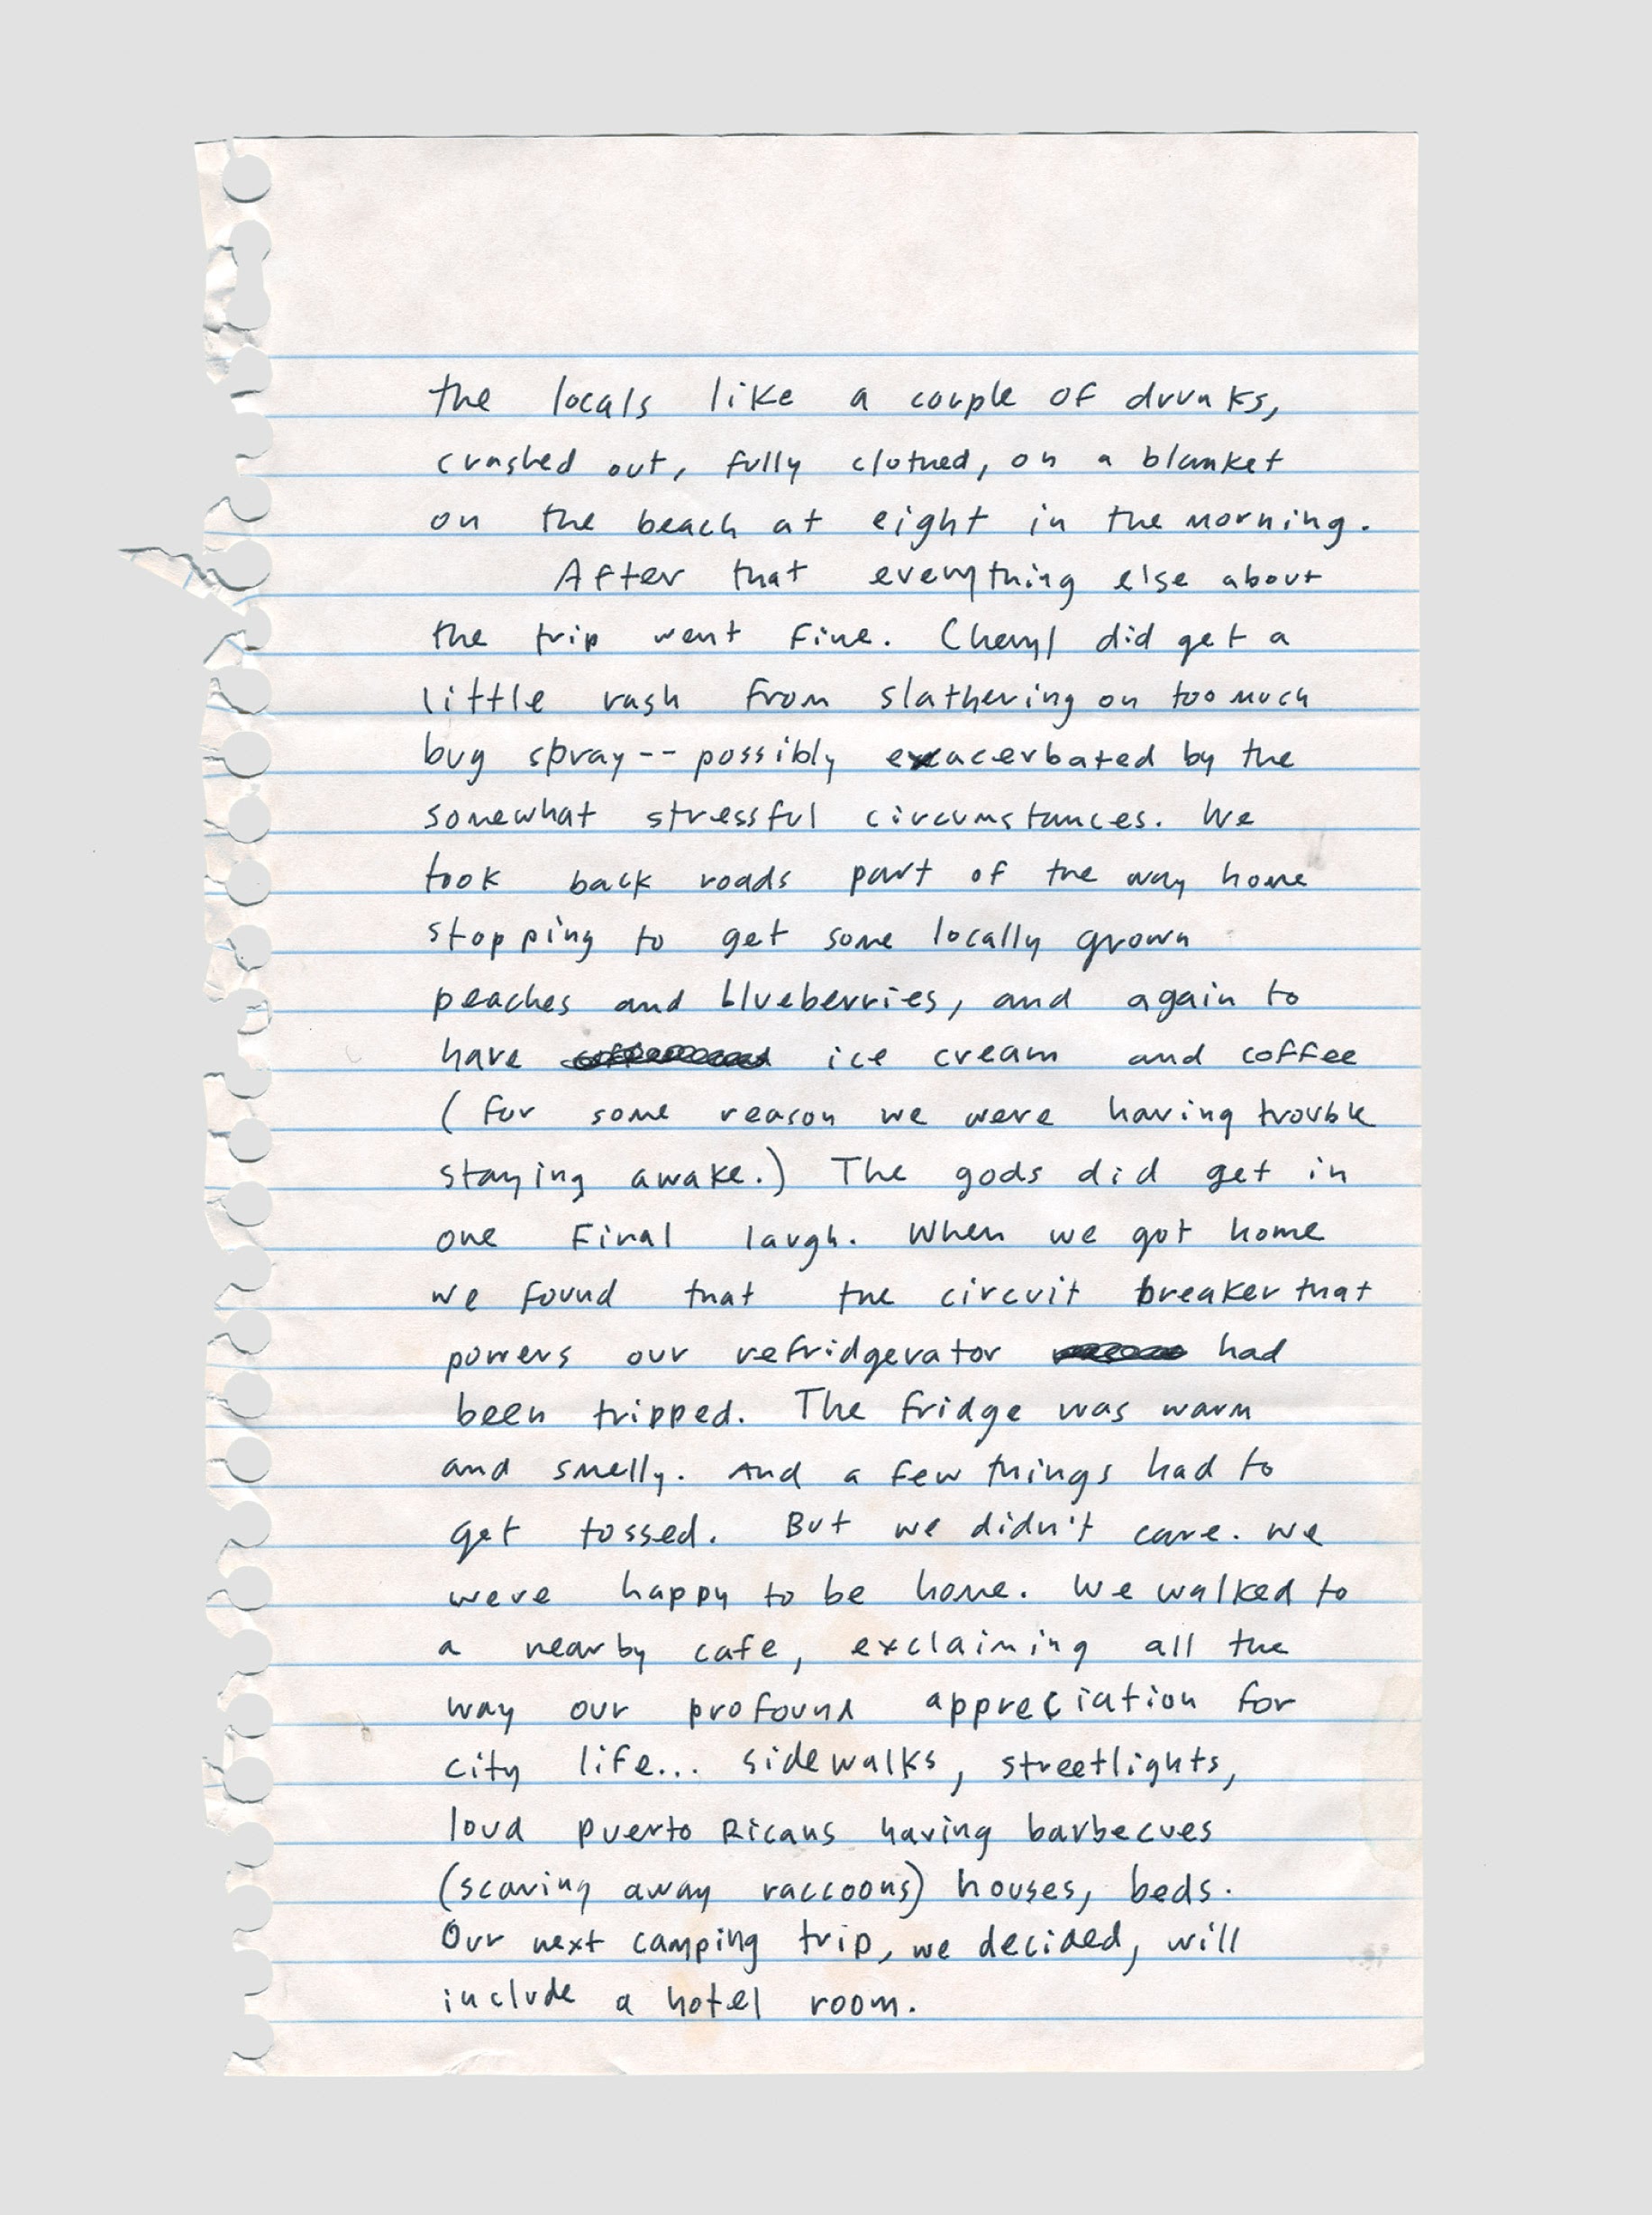 the locals like a couple of drunks,
crashed out, fully clothed, on a blanket
on the beach at eight in the morning.
After that everything else about
the trip went fine. Cheryl did get a
little rash from slathering on too much
bug spray -- possibly exacerbated by the
somewhat stressful circumstances. We
took back roads part of the way home
stopping to get some locally grown
peaches and blueberries, and again to
have ice cream and coffee
(for some reason we were having trouble
staying awake.) The gods did get in
one final laugh. When we got home
we found that the circuit breaker that
powers our refridgerator had
been tripped. The fridge was warm
and smelly. And a few things had to
get tossed. But we didn't care. We
were happy to be home. We walked to
a nearby cafe, exclaiming all the
way our profound appreciation for
city life... sidewalks, streetlights,
loud Puerto Ricans having barbecues
(scaring away raccoons) houses, beds.
Our next camping trip, we decided, will
include a hotel room.